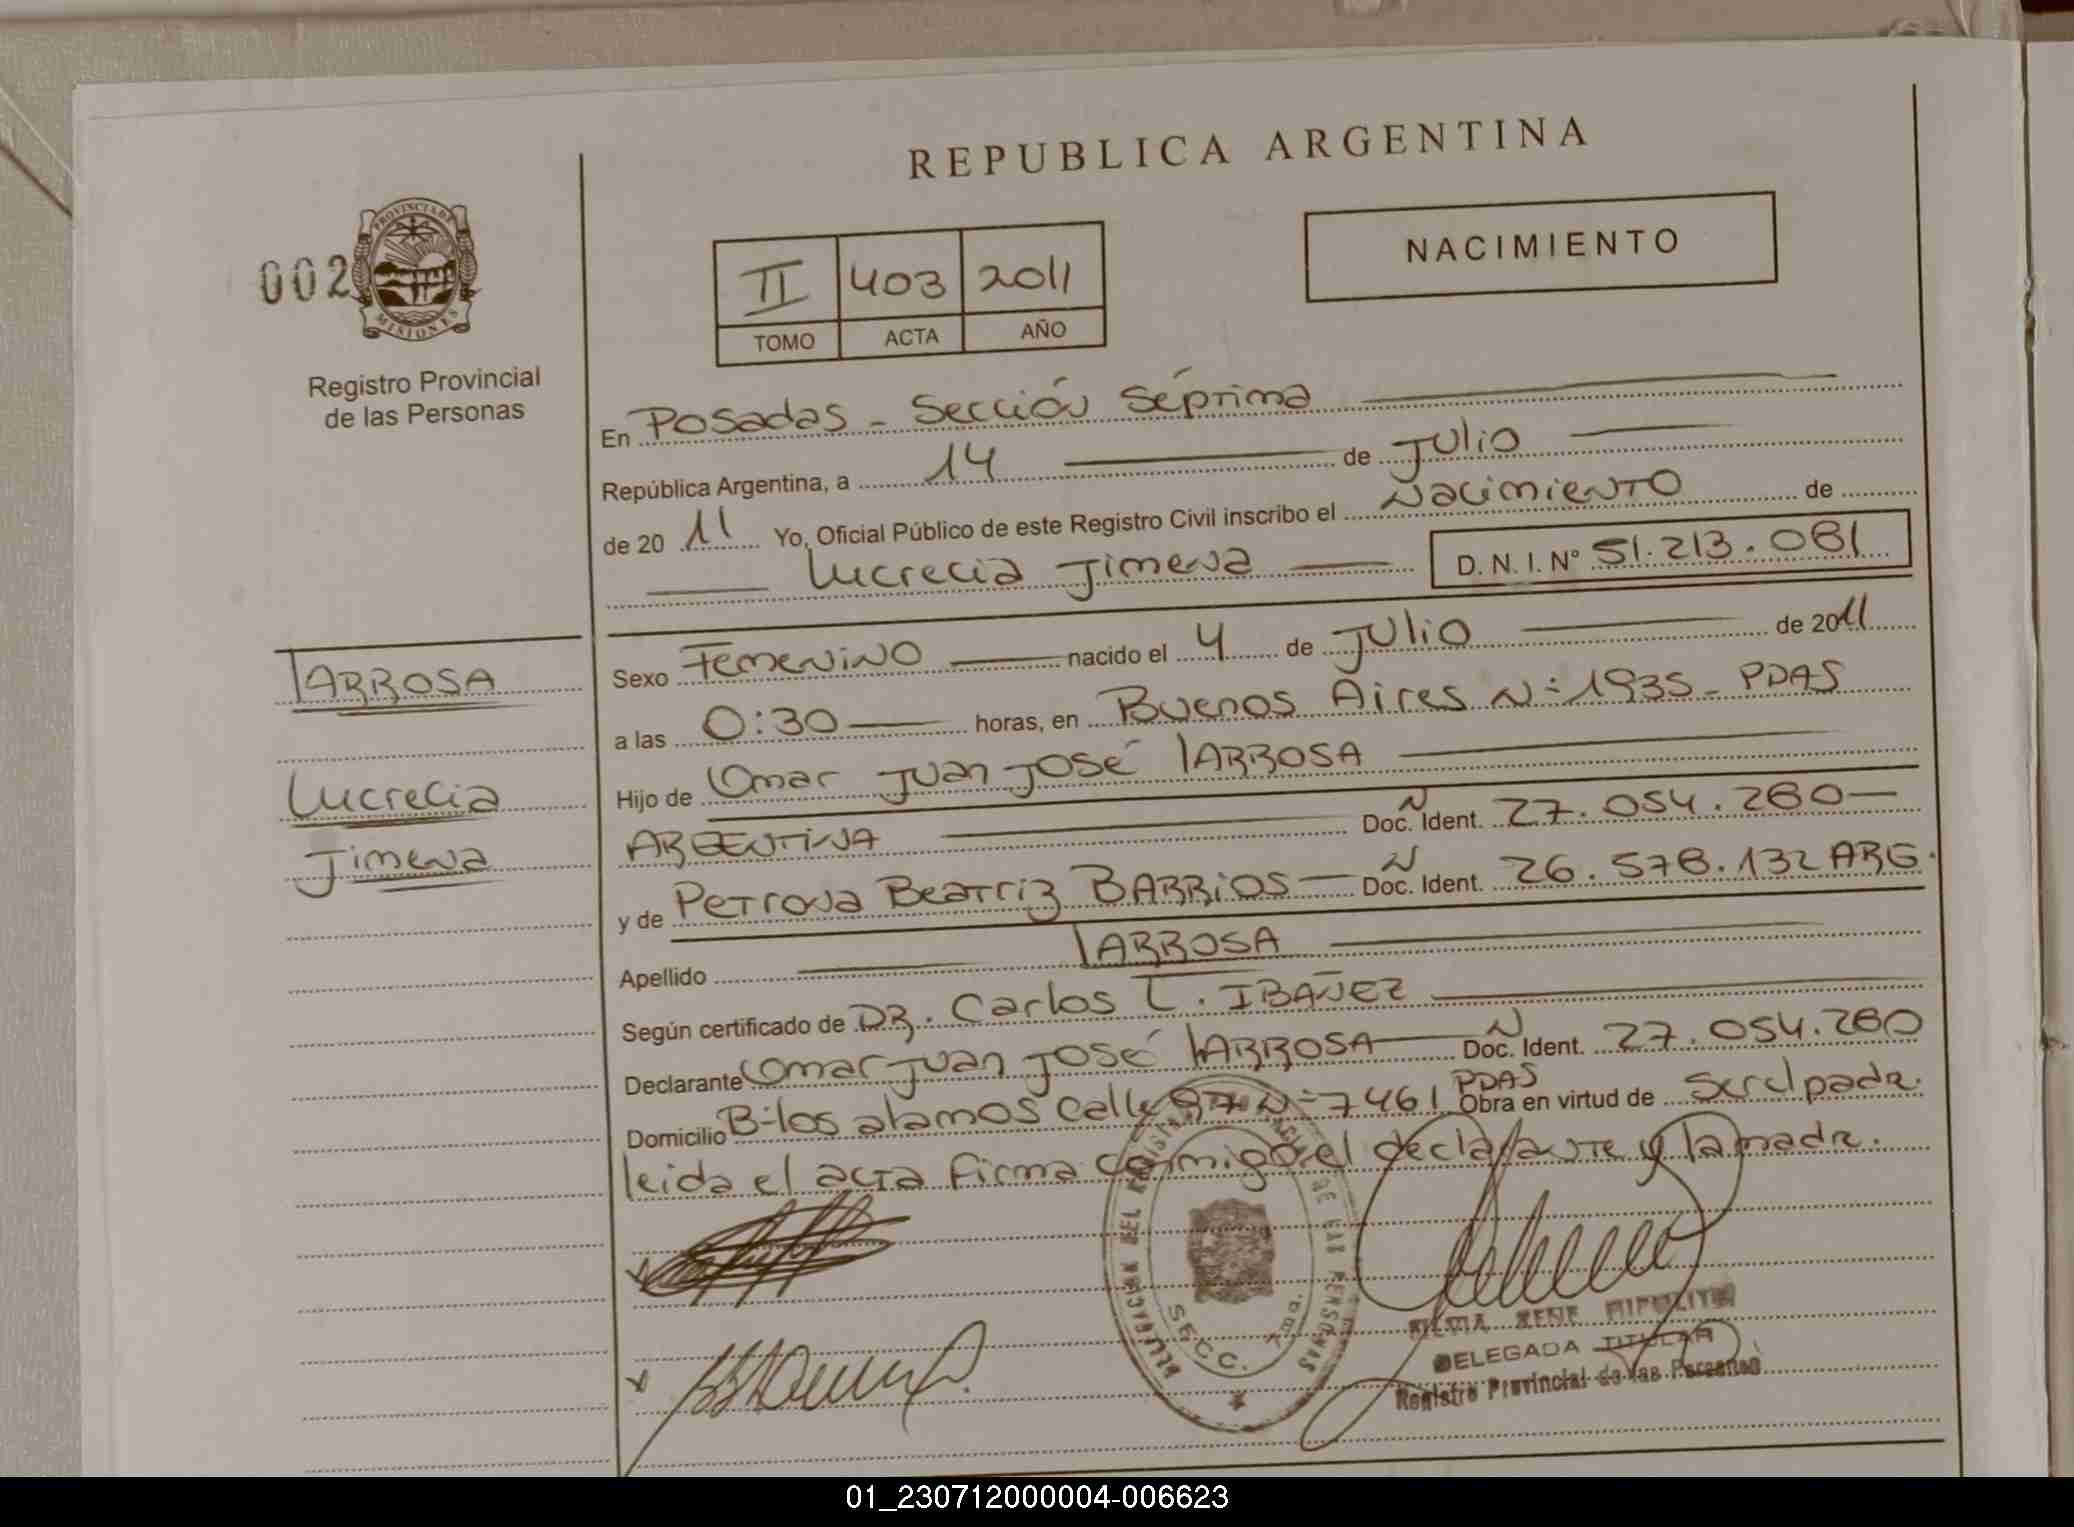 REPUBLICA ARGENTINA
002
PROVINCIA DE MISIONES
Registro Provincial
de las Personas
NACIMIENTO
II 403 2011
TOMO ACTA AÑO
En Posadas - Sección Séptima
República Argentina, a 14 de Julio
de 20 11 Yo, Oficial Público de este Registro Civil inscribo el Nacimiento de
Lucrecia Jimena D. N. I. Nº 51.213.081
TARROSA
Lucrecia
Jimena
Sexo Femenino nacido el 4 de Julio de 2011
a las 0:30 horas, en Buenos Aires N=1935 - PDAS
Hijo de Omar Juan José TARROSA
ARGENTINA Doc. Ident. 27.054.280
y de Petrona Beatriz BARRIOS Doc. Ident. 26.578.132 ARG.
Apellido TARROSA
Según certificado de DR. Carlos L. IBAÑEZ
Declarante Omar Juan José TARROSA Doc. Ident. 27.054.280
Domicilio B=los alamos calle N=7461 PDAS Obra en virtud de padr.
leida el acta firma conmigo el declarante y la madr.
DELEGACION DEL REGISTRO DE LAS PERSONAS
SECC. 7ma.
DELEGADA TITULAR
Registro Provincial de las Personas
01_230712000004-006623